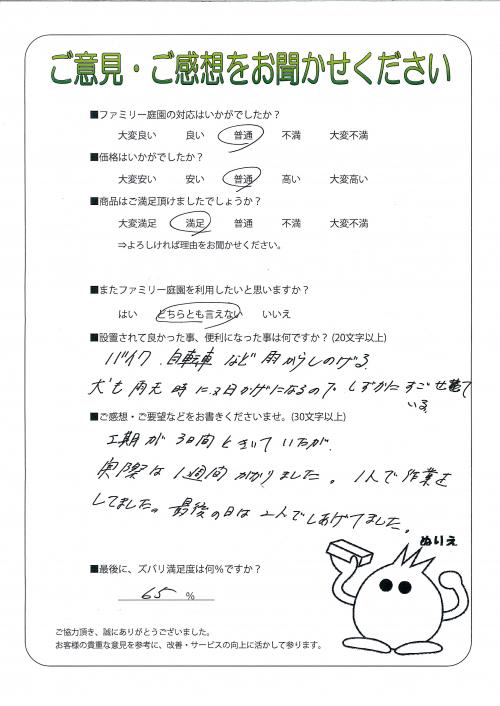 ご意見・ご感想をお聞かせください
■ファミリー庭園の対応はいかがでしたか？
大変良い 良い 普通 不満 大変不満
■価格はいかがでしたか？
大変安い 安い 普通 高い 大変高い
■商品はご満足頂けましたでしょうか？
大変満足 満足 普通 不満 大変不満
⇒よろしければ理由をお聞かせください。
■またファミリー庭園を利用したいと思いますか？
はい どちらとも言えない いいえ
■設置されて良かった事、便利になった事は何ですか？(20文字以上)
バイク、自転車など雨からしのげる。
犬も雨天時に、又日かげになるので しずかにすごせて
いる。
■ご感想・ご要望などをお書きくださいませ。(30文字以上)
工期が3日間ときいていたが、
実際は1週間かかりました。1人で作業を
してました。最後の日は2人でしあげてました。
ぬりえ
■最後に、ズバリ満足度は何％ですか？
65 ％
ご協力頂き、誠にありがとうございました。
お客様の貴重な意見を参考に、改善・サービスの向上に活かして参ります。